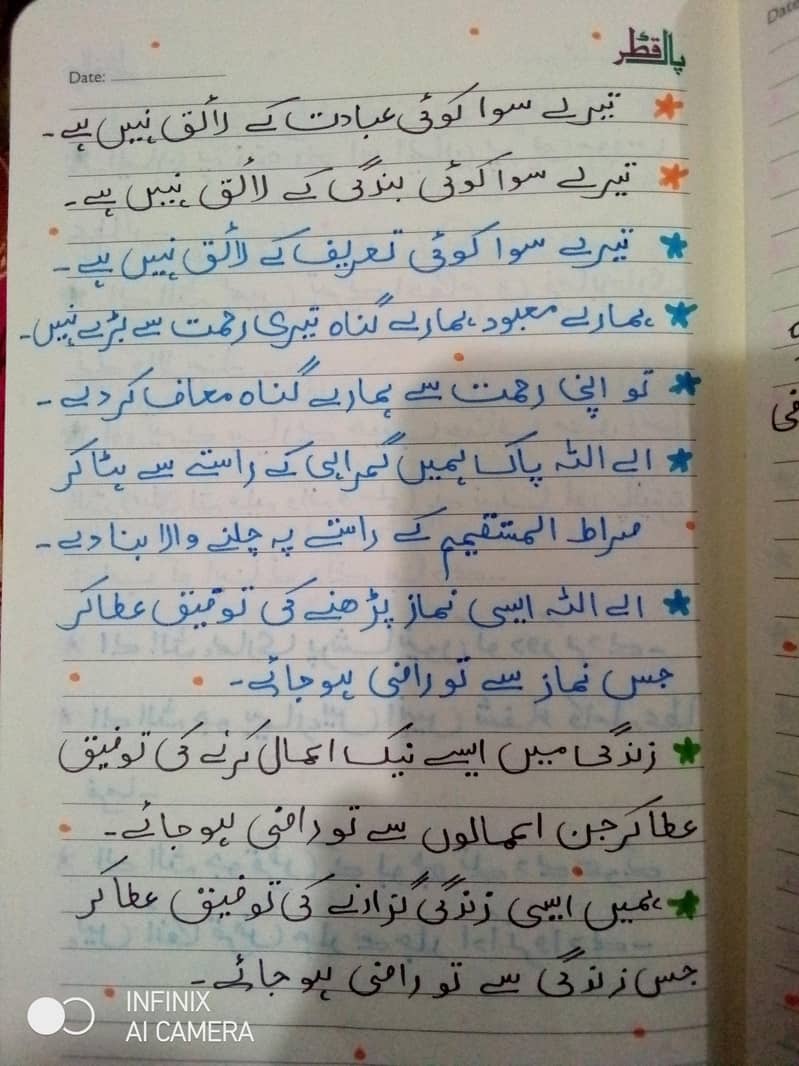 پاک قطر
Date:
تیرے سوا کوئی عبادت کے لائق نہیں ہے۔
تیرے سوا کوئی بندگی کے لائق نہیں ہے۔
تیرے سوا کوئی تعریف کے لائق نہیں ہے۔
ہمارے معبود ہمارے گناہ تیری رحمت سے بڑے نہیں۔
تو اپنی رحمت سے ہمارے گناہ معاف کر دے۔
اے اللہ پاک ہمیں گمراہی کے راستے سے ہٹا کر
صراط المستقیم کے راستے پہ چلنے والا بنا دے۔
اے اللہ ایسی نماز پڑھنے کی توفیق عطا کر
جس نماز سے تو راضی ہو جائے۔
زندگی میں ایسے نیک اعمال کرنے کی توفیق
عطا کر جن اعمالوں سے تو راضی ہو جائے۔
ہمیں ایسی زندگی گزارنے کی توفیق عطا کر
جس زندگی سے تو راضی ہو جائے۔
INFINIX
AI CAMERA